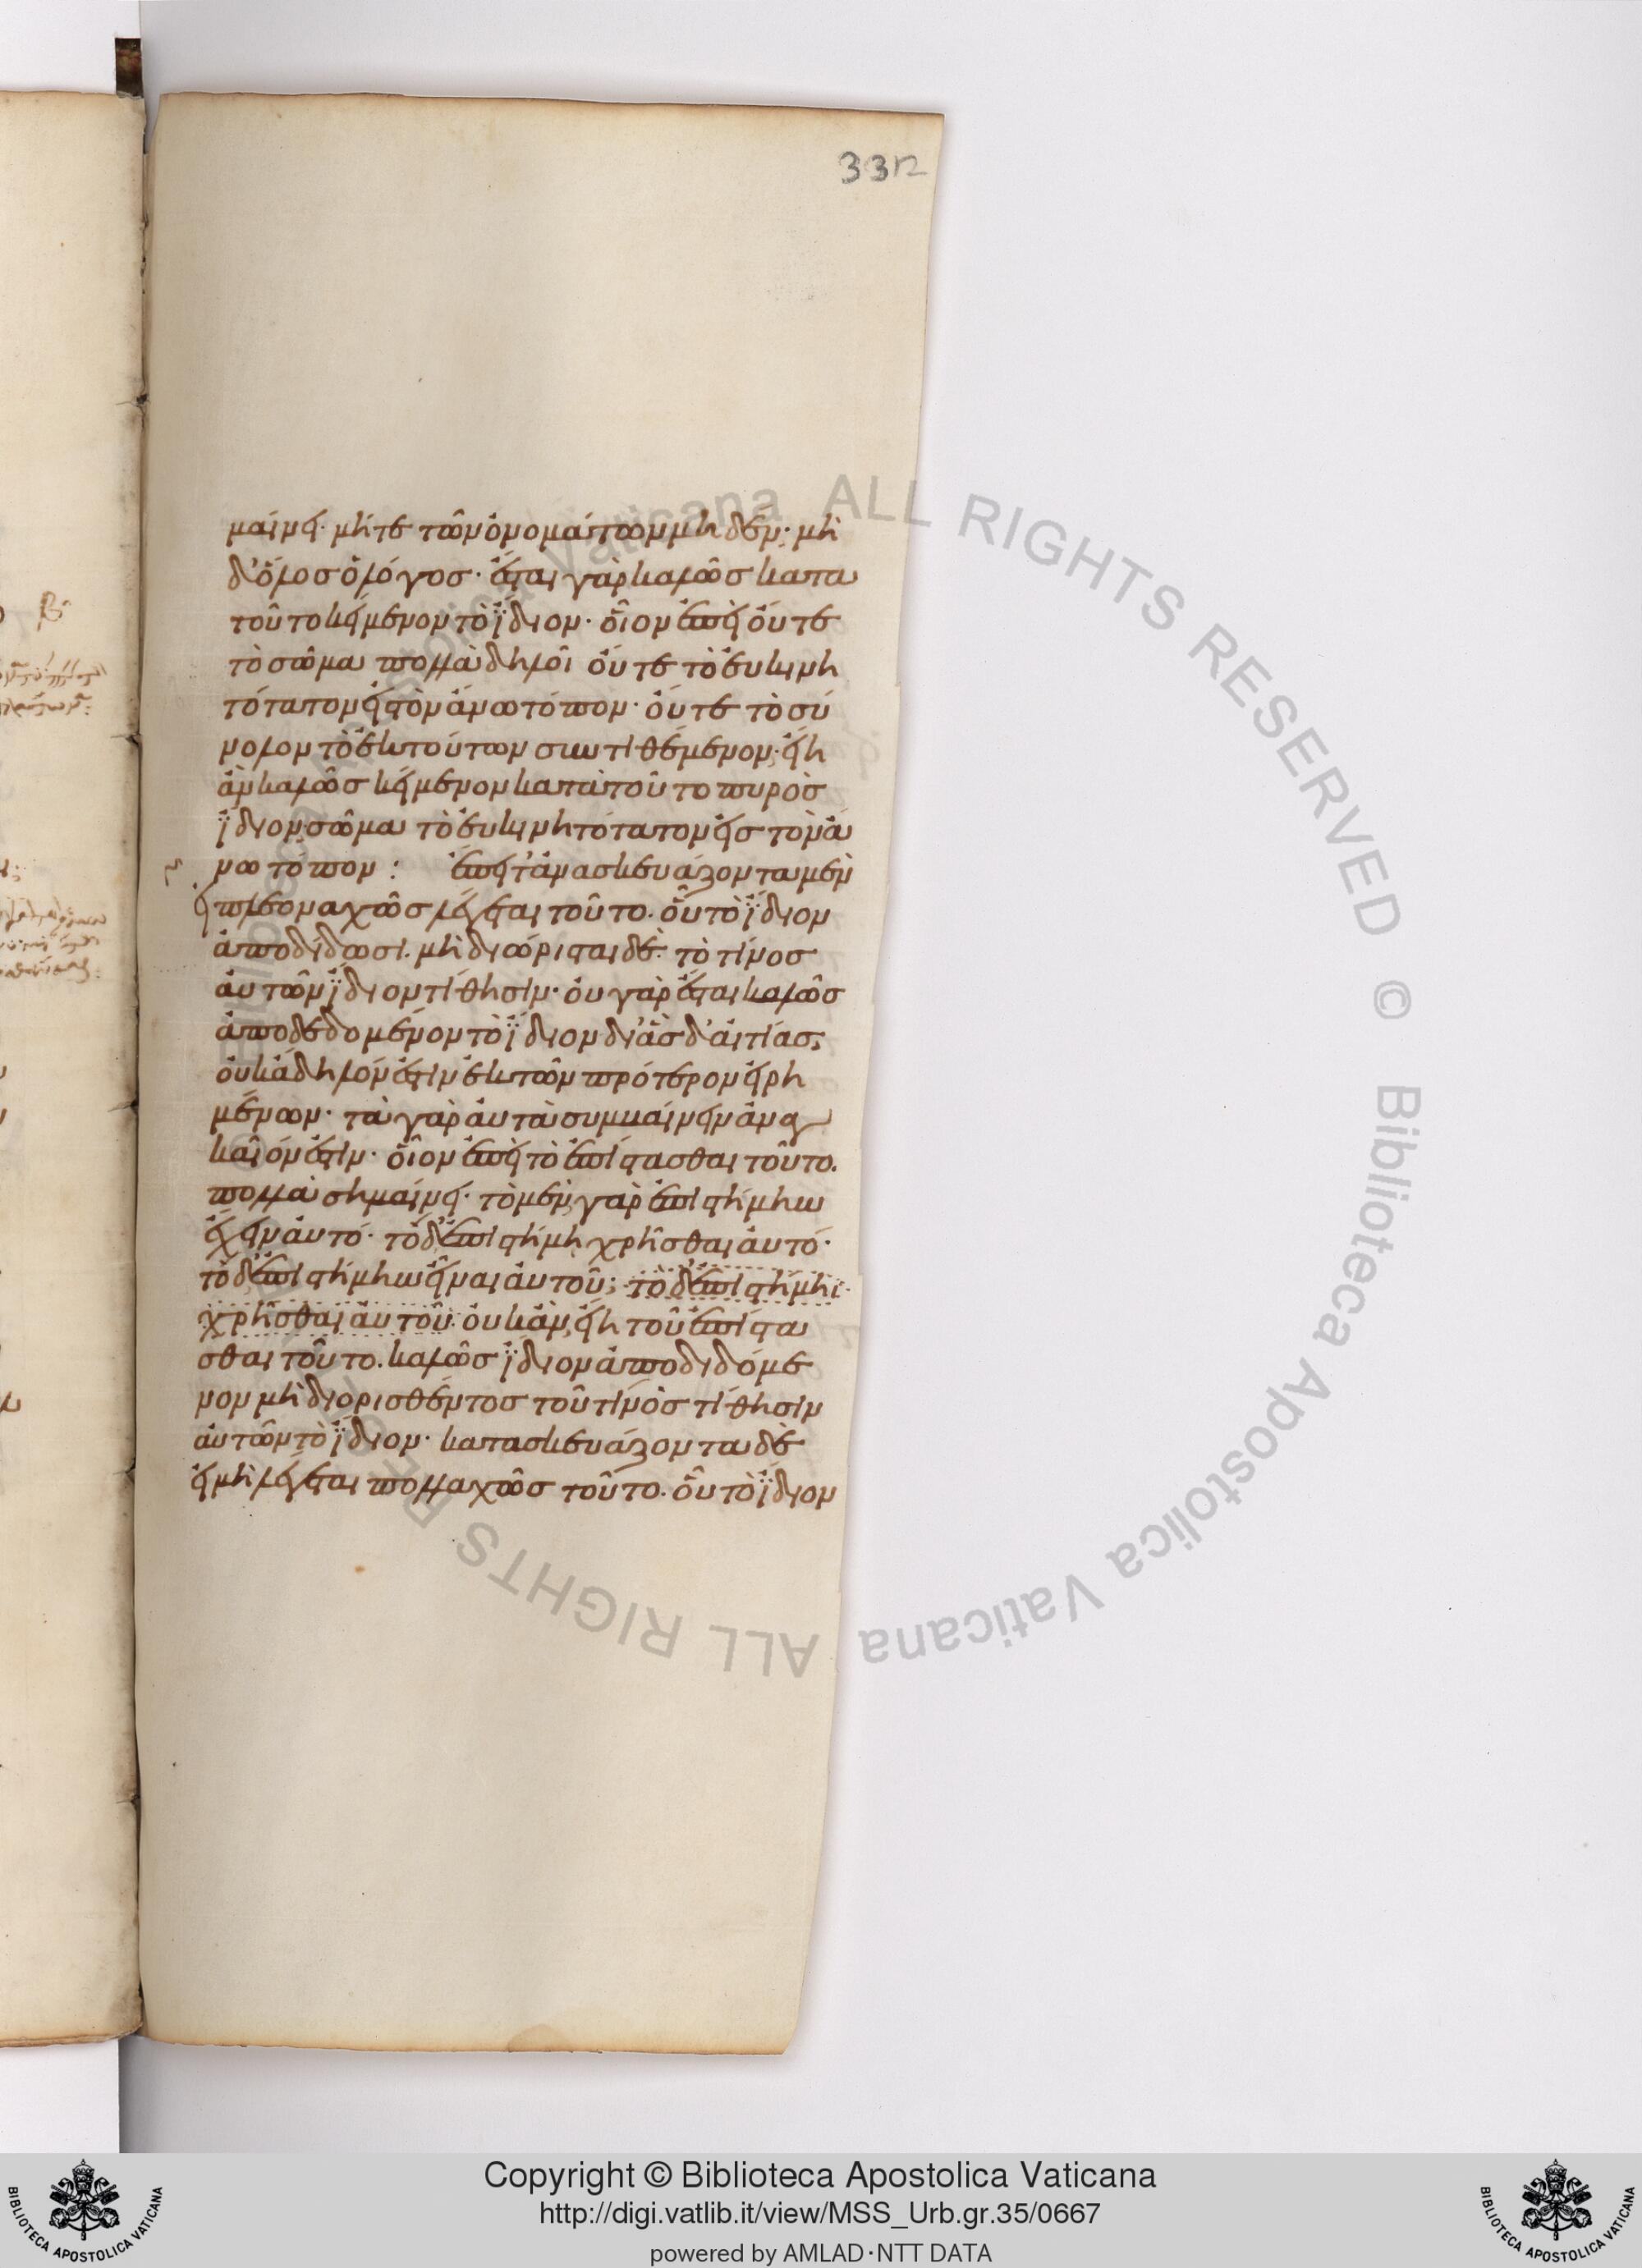 33r
μαίνει· μήτε τῶν ὀνομάτων μηδέν· μὴ
δ' ὅλος ὁ λόγος· ἔσται γὰρ καλῶς κατα
τοῦτο κείμενον τὸ ἴδιον· οἷον ἐπεὶ οὔτε
τὸ σῶμα πολλὰ δηλοῖ οὔτε τὸ εὐκινη
τότατον εἰς τὸν ἄνω τόπον· οὔτε τὸ σύ
νολον τὸ ἐκ τούτων συντιθέμενον· εἴη
ἂν καλῶς κείμενον κατὰ τοῦτο πυρὸς
ἴδιον σῶμα τὸ εὐκινητότατον εἰς τὸν ἄ
νω τόπον : ἔπειτ' ἀνασκευάζοντα μὲν
εἰ πλεοναχῶς λέγεται τοῦτο. οὗ τὸ ἴδιον
ἀποδίδωσι. μὴ διώρισται δὲ· τὸ τίνος
αὐτῶν ἴδιον τίθησιν· οὐ γὰρ ἔσται καλῶς
ἀποδεδομένον τὸ ἴδιον δι' ἃς δ' αἰτίας;
οὐκ ἄδηλόν ἐστιν ἐκ τῶν πρότερον εἰρη
μένων· τὰ γὰρ αὐτὰ συμβαίνειν ἀναγ
καῖόν ἐστιν· οἷον ἐπεὶ τὸ ἐπίστασθαι τοῦτο.
πολλὰ σημαίνει· τὸ μὲν γὰρ ἐπιστήμην
ἔχειν αὐτό· τὸ δ' ἐπιστήμη χρῆσθαι αὐτό·
τὸ δ' ἐπιστήμην εἶναι αὐτοῦ; τὸ δ' ἐπιστήμηι
χρῆσθαι αὐτοῦ· οὐκ ἂν εἴη τοῦ ἐπίστα
σθαι τοῦτο. καλῶς ἴδιον ἀποδιδόμε
νον μὴ διορισθέντος τοῦ τίνὸς τίθησιν
αὐτῶν τὸ ἴδιον· κατασκευάζοντα δὲ
εἰ μὴ λέγεται πολλαχῶς τοῦτο. οὗ τὸ ἴδιον
Copyright © Biblioteca Apostolica Vaticana
http://digi.vatlib.it/view/MSS_Urb.gr.35/0667
powered by AMLAD·NTT DATA